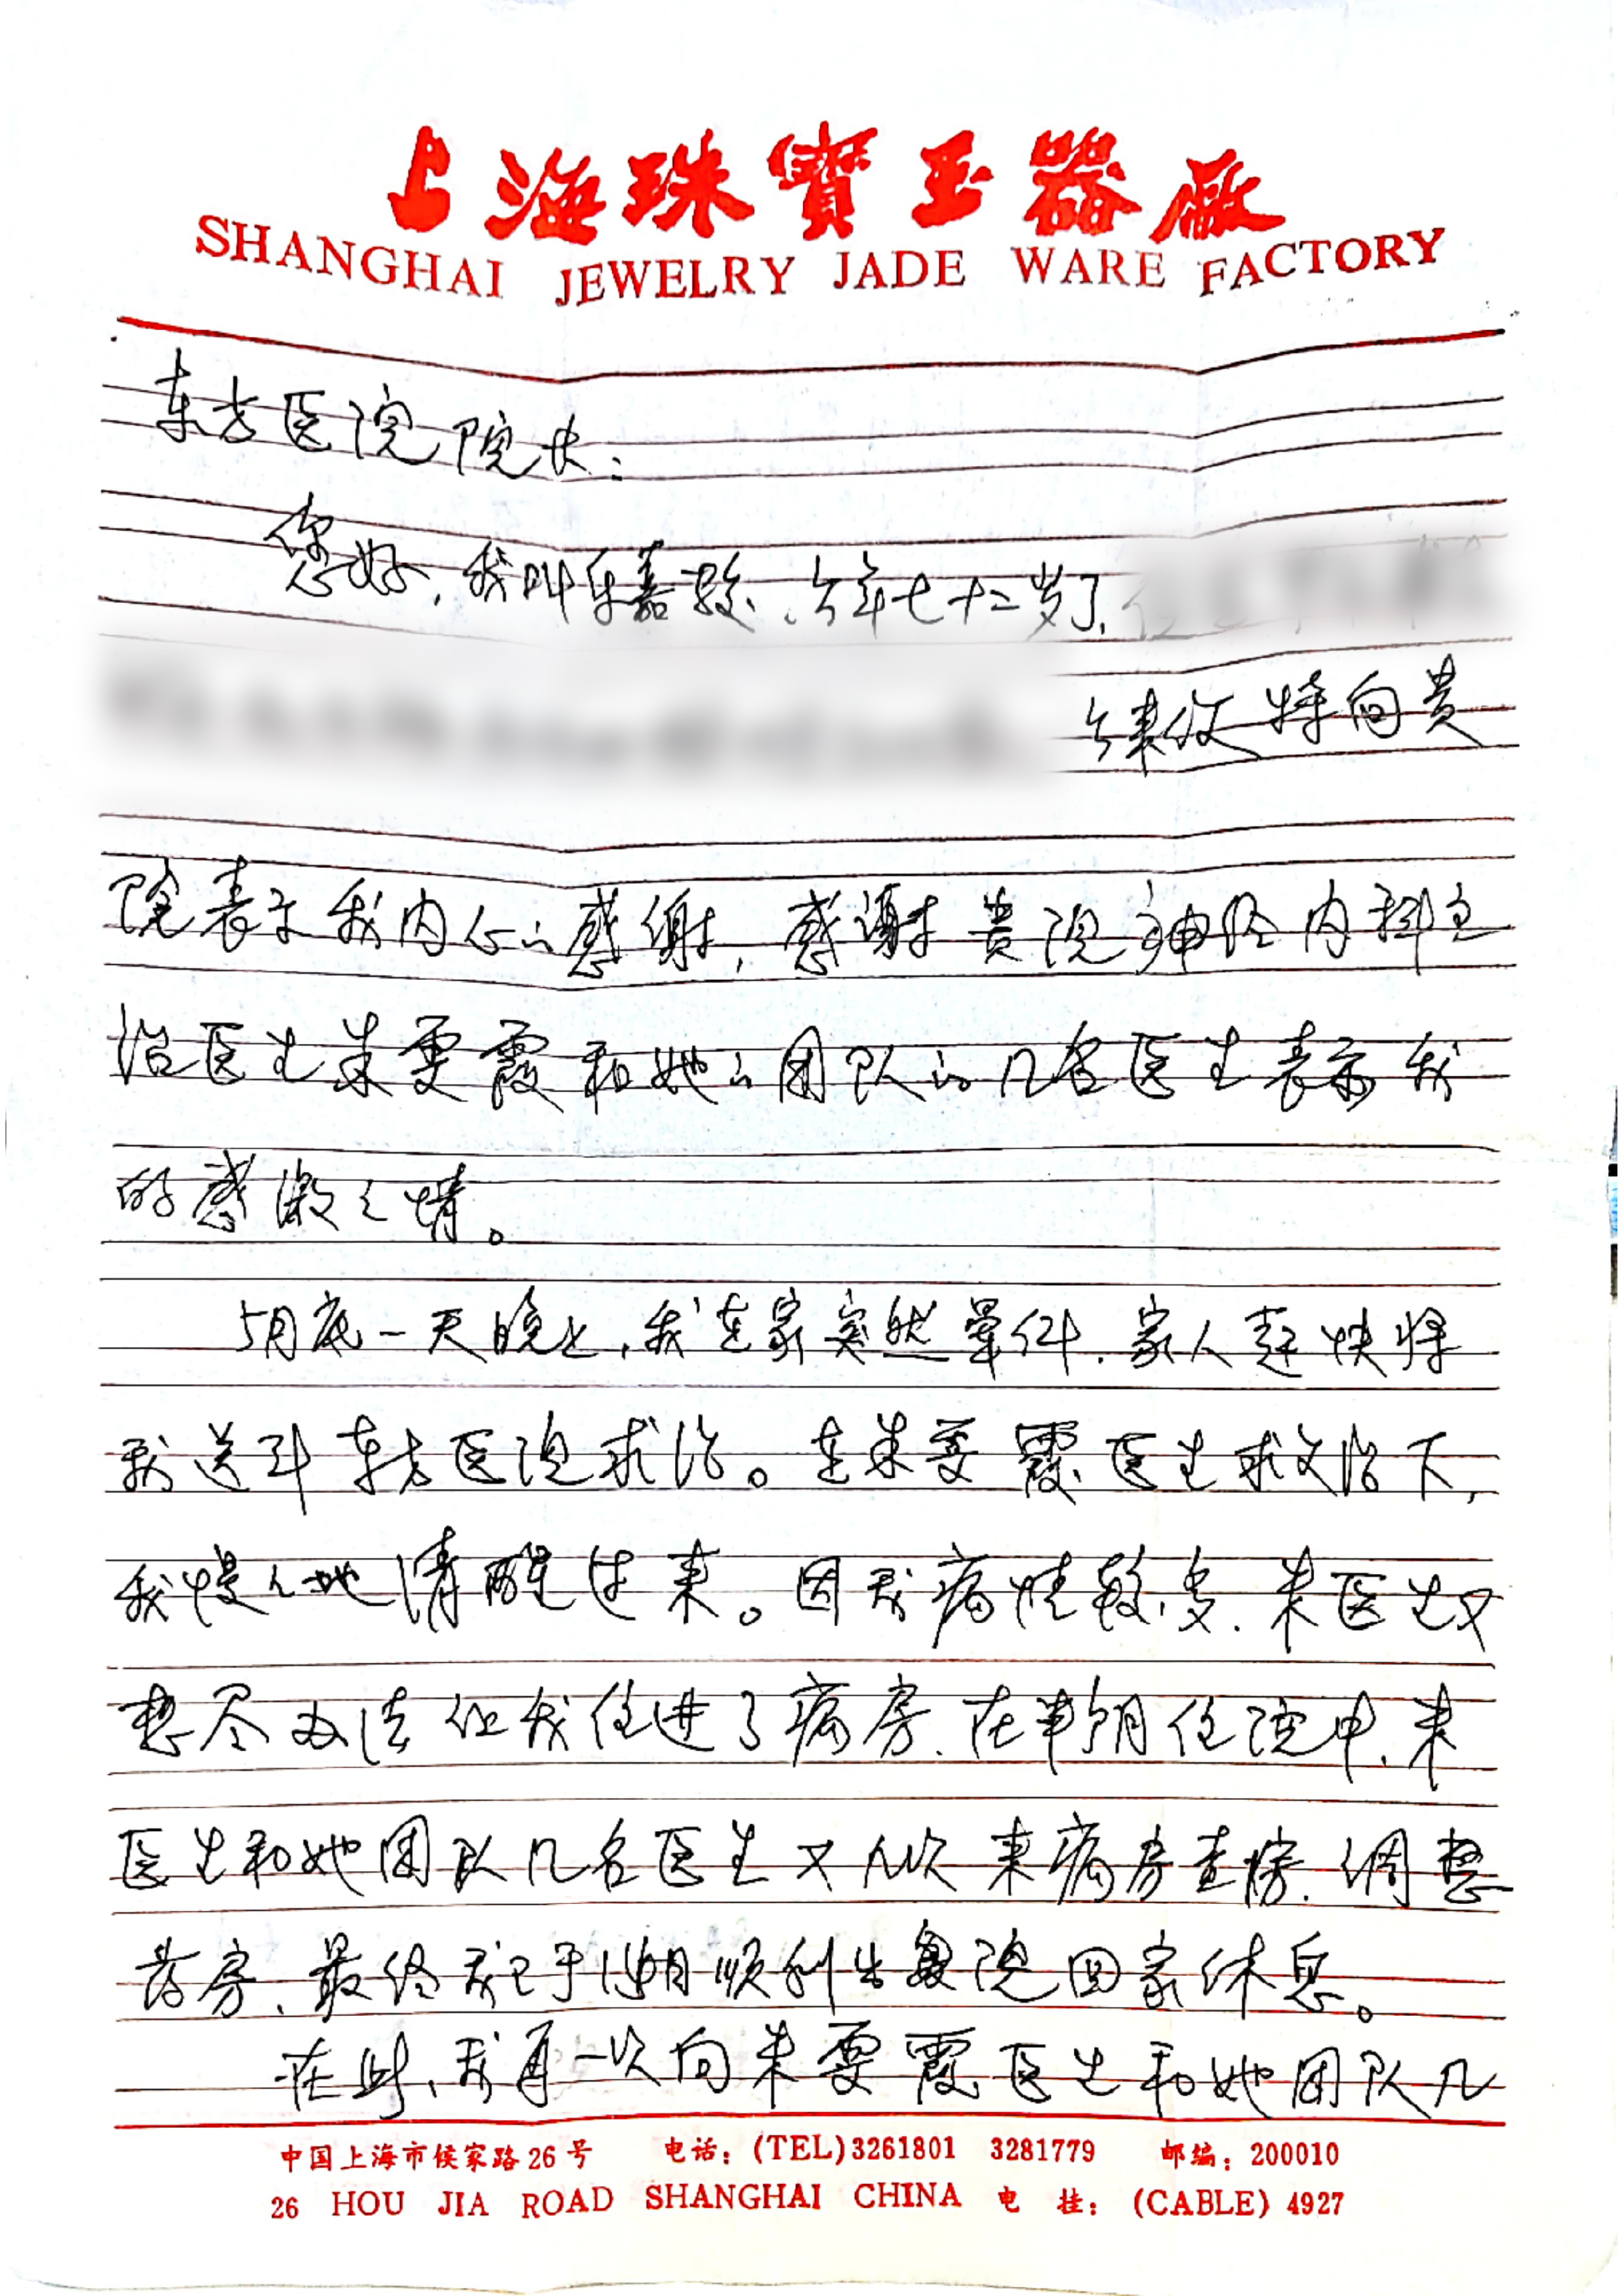 上海珠寳玉器廠
SHANGHAI JEWELRY JADE WARE FACTORY
东方医院院长:
您好,我叫乐嘉,今年七十二岁了,
今来信特向贵
院表示我内心的感谢,感谢贵院神经内科主
治医生朱雯霞和她的团队的几名医生表示我
的感激之情。
5月底一天晚上,我在家突然晕倒,家人赶快将
我送到东方医院求治。在朱雯霞医生救治下,
我慢慢地清醒过来。因我病情较多,朱医生又
想尽办法让我住进了病房,在半月住院中,朱
医生和她团队几名医生又几次来病房查房,调整
药房,最终我已于6月顺利出院回家休息。
在此,我再一次向朱雯霞医生和她团队几
中国上海市候家路26号 电话:(TEL)3261801 3281779 邮编:200010
26 HOU JIA ROAD SHANGHAI CHINA 电 挂:(CABLE) 4927